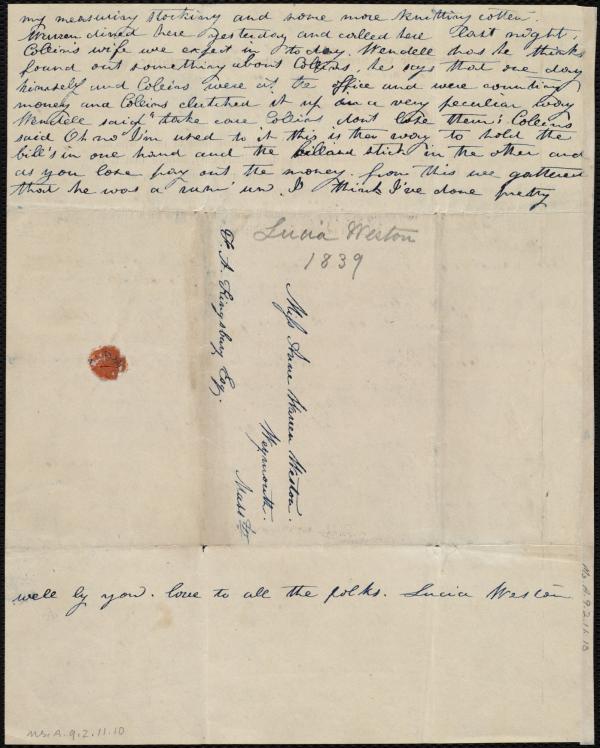 my measuring stocking and some more knitting cotton.
Warren dined here yesterday and called here last night.
Collins's wife we expect in to day. Wendell has he thinks
found out something about Collins, he says that one day
himself and Collins were at the office and were counting
money and Collins clutched it up in a very peculiar way
Wendell said "take care Collins, don't lose them", Collins
said Oh no I'm used to it this is the way to hold the
bill's in one hand and the billard stick in the other and
as you lose pay out the money. from this we gathered
that he was a rum' un. I think I've done pretty
Lucia Weston
1839
F. A. Kingsbury Esq.
Miss Anne Warren Weston.
Weymouth.
Mass
well by you. love to all the folks. Lucia Weston
Ms. A. 9. 2. 11. 10
Ms. A. 9. 2. 11. 10